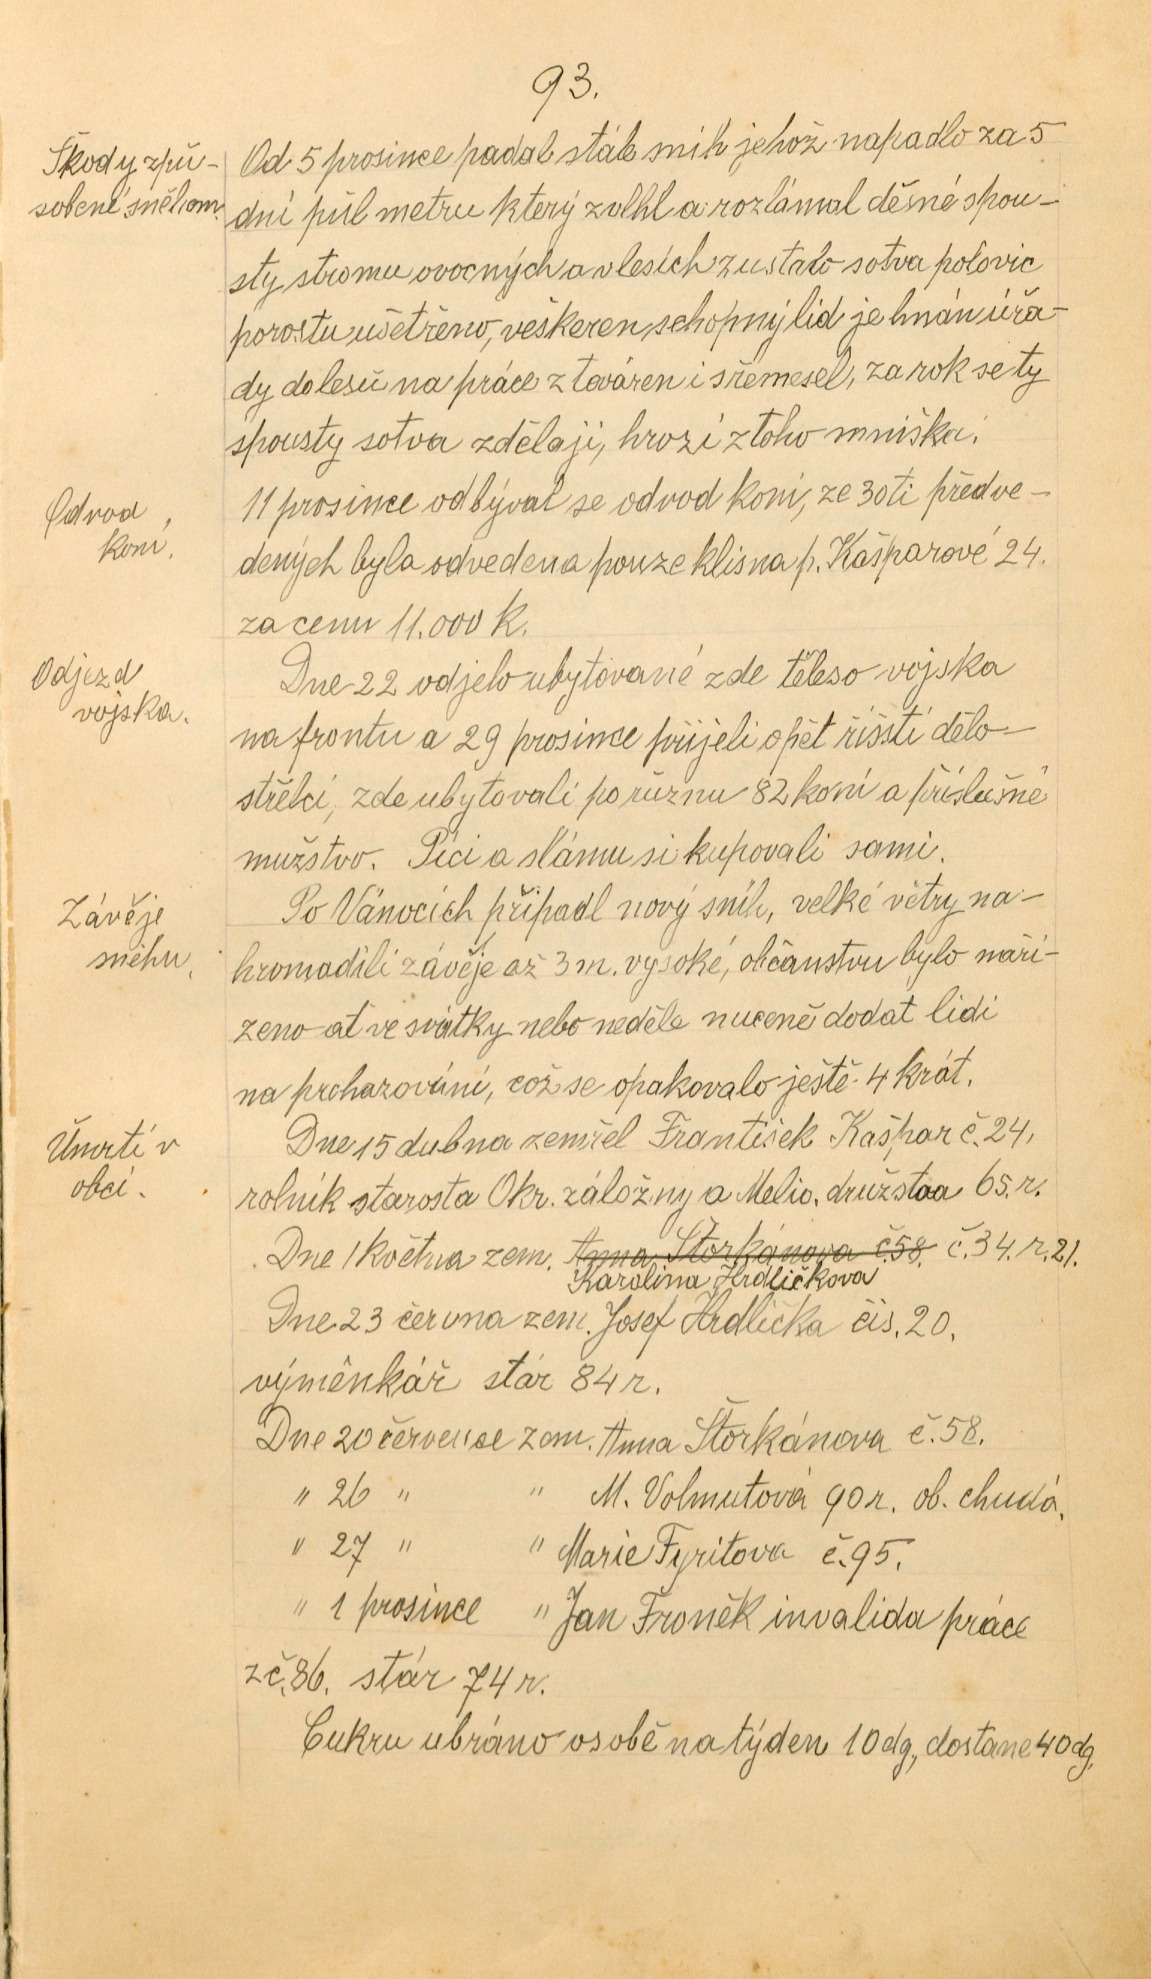 93.
Škody způ-
sobené sněhem.
Od 5 prosince padal stále sníh jehož napadlo za 5
dní půl metru který zvlhl a rozlámal děsné spou-
sty stromu ovocných a v lesích zustalo sotva polovic
porostu ušetřeno, veškeren schopný lid je hnán úřa-
dy do lesů na práce z továren i s řemesel, za rok se ty
spousty sotva zdělají, hrozí z toho mniška.
Odvod
koní.
11 prosince odbýval se odvod koní, ze 30ti předve-
dených byla odvedena pouze klisna p. Kašparové 24.
za cenu 11.000 K.
Odjezd
vojska.
Dne 22 odjelo ubytované zde těleso vojska
na frontu a 29 prosince přijeli opět říšstí dělo-
střelci, zde ubytovali po různu 82 koní a příslušné
mužstvo. Píci a slámu si kupovali sami.
Závěje
sněhu.
Po Vánocích připadl nový sníh, velké větry na-
hromadili závěje až 3 m. vysoké, občanstvu bylo naří-
zeno ať ve svátky nebo neděle nuceně dodat lidi
na prohazování, což se opakovalo ještě 4 krát.
Úmrtí v
obci.
Dne 15 dubna zemřel František Kašpar č. 24,
rolník starosta Okr. záložny a Melio. družstva 65. r.
Dne 1 května zem. Anna Štorkánova č.58. č. 34. r. 21.
Karolina Hrdličkova
Dne 23 června zem. Josef Hrdlička čís. 20.
výměnkář stár 84 r.
Dne 20 července zem. Anna Štorkánova č. 58.
" 26 " " M. Volmutová 90 r. ob. chudá.
" 27 " " Marie Fyritova č. 95.
" 1 prosince " Jan Froněk invalida práce
z č. 86. stár 74 r.
Cukru ubráno osobě na týden 10 dg., dostane 40 dg.